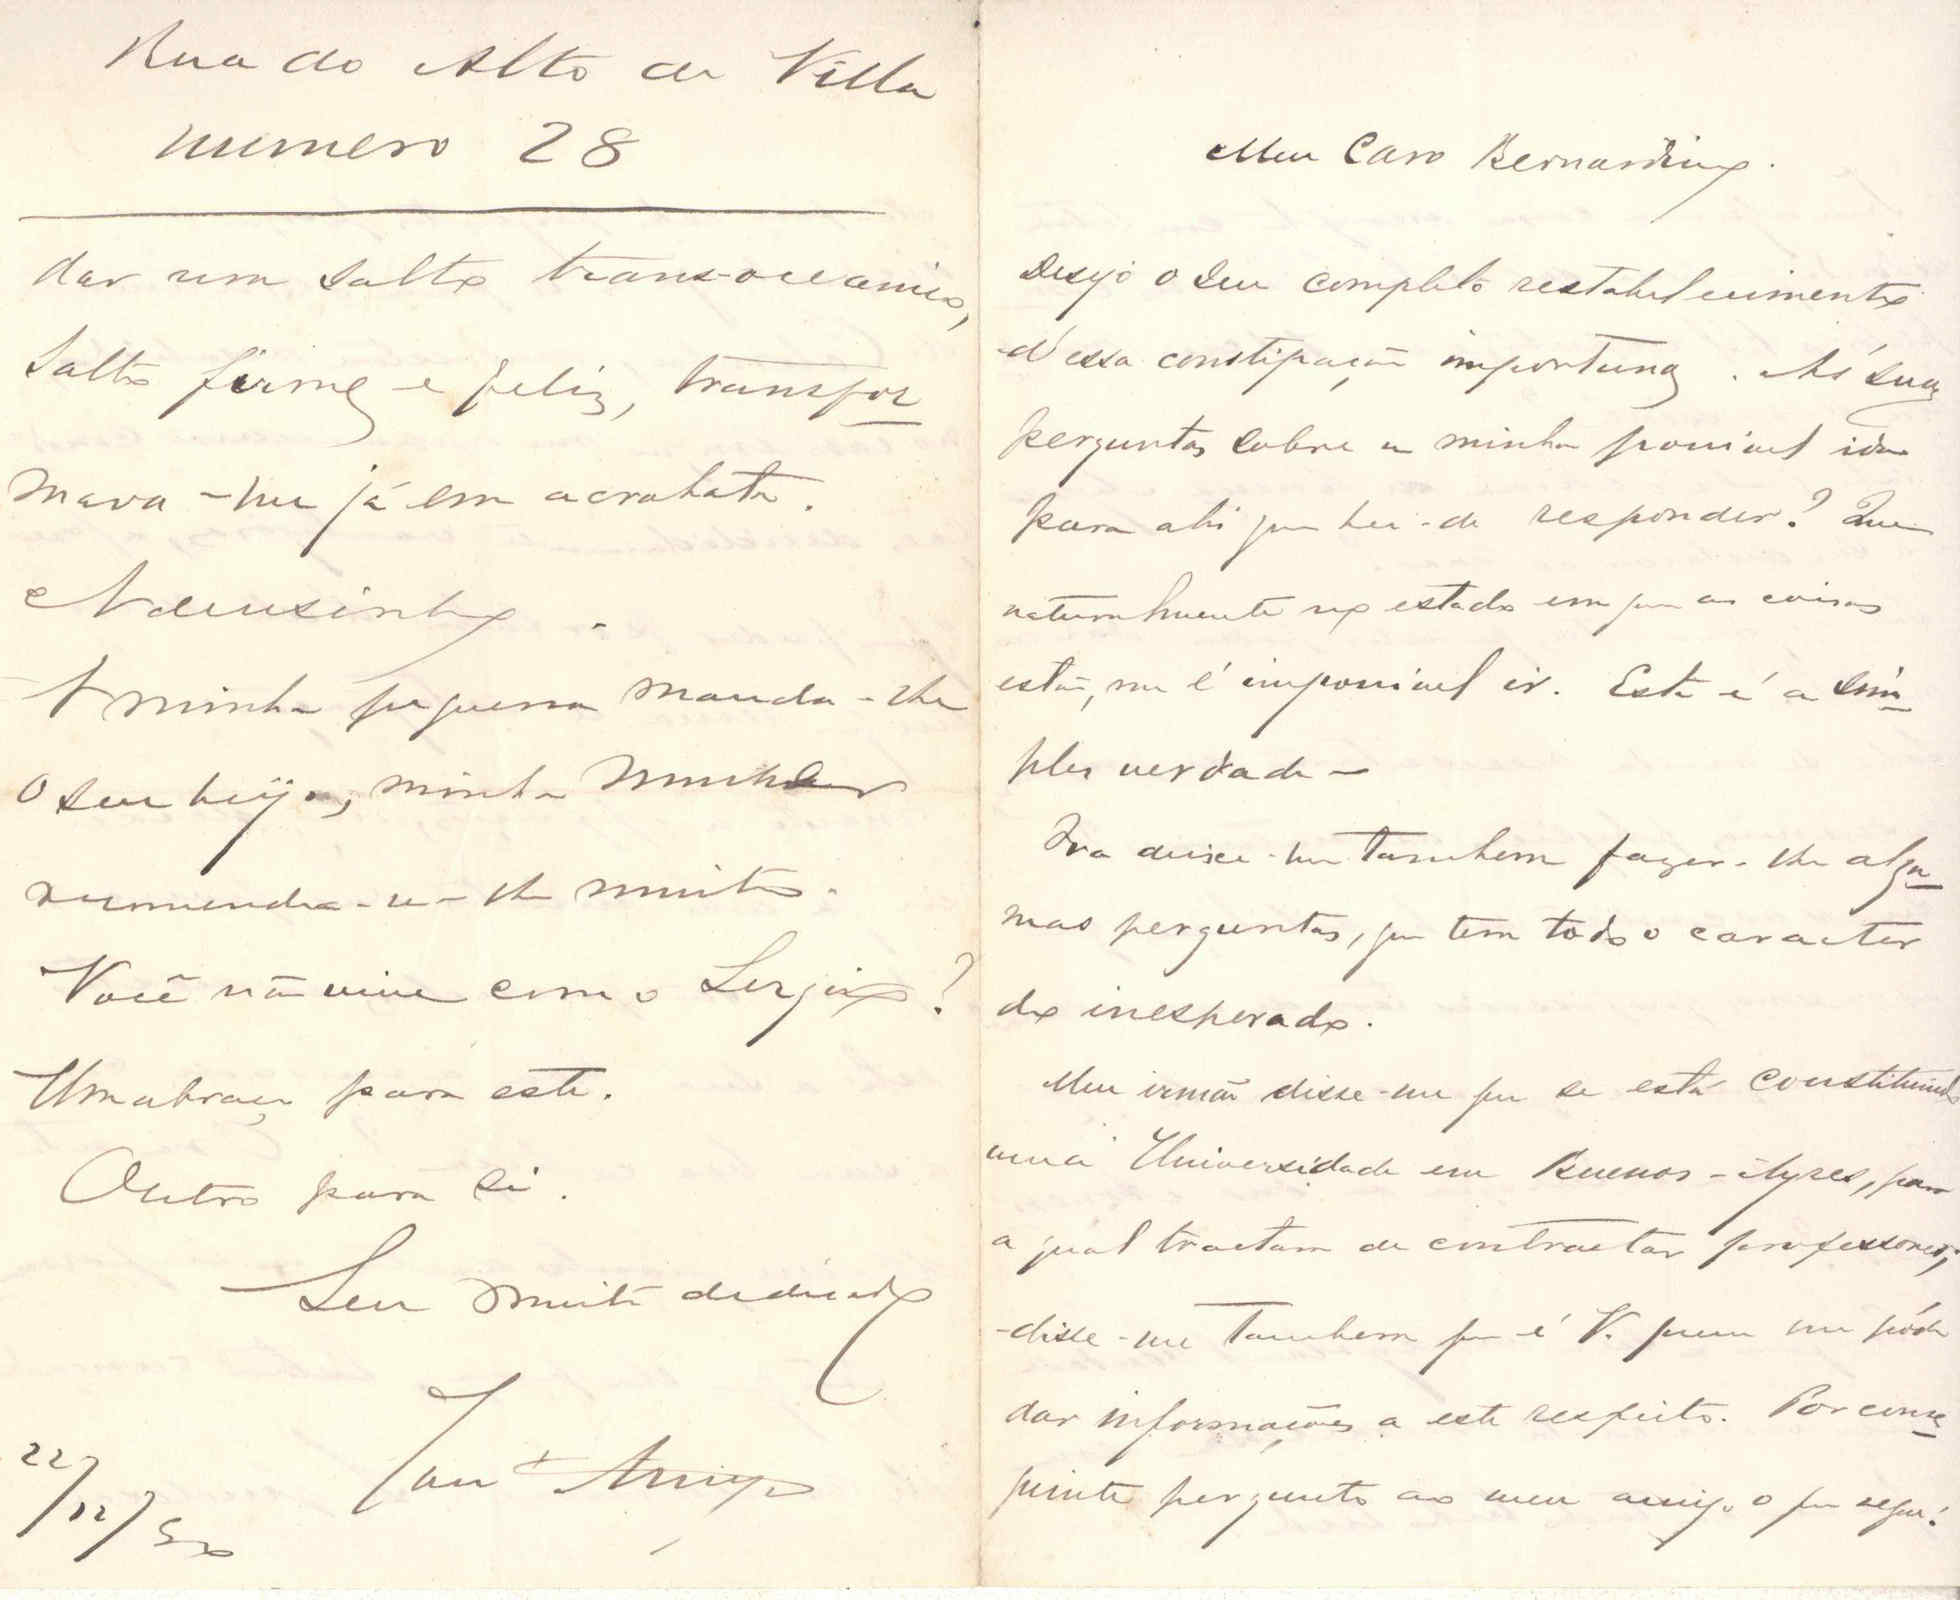 Rua do Alto de Villa
numero 28
dar um salto trans-oceanico,
salto firme e feliz, transfor
mava-me já em acrobata.
Adeusinho.
A minha pequena manda-lhe
o seu beijo, minha mulher
recomenda-se-lhe muito.
Você não vive com o Sergio?
Um abraço para este.
Outro para si.
Seu muito dedicado
22/12/
Meu Caro Bernardino.
Desejo o seu completo restabelecimento
d'essa constipação importuna. Ás suas
perguntas sobre a minha possivel ida
para ahi que hei-de responder? Que
naturalmente no estado em que as coisas
estão, me é impossivel ir. Esta é a sim
ples verdade —
Ora deixe-me tambem fazer-lhe algu
mas perguntas, que tem todo o caracter
do inesperado.
Meu irmão disse-me que se está constituindo
uma Universidade em Buenos-Ayres, para
a qual tractam de contractar professores;
disse-me tambem que é V. quem me póde
dar informações a este respeito. Por conse
guinte pergunto ao meu amigo o que segue: